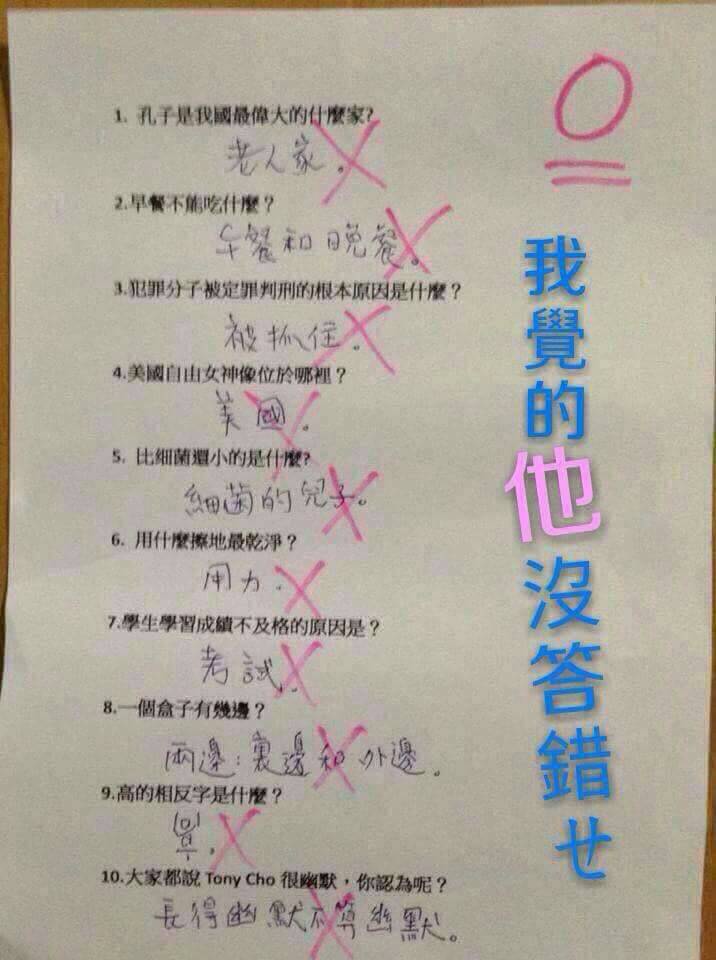 0
1. 孔子是我國最偉大的什麼家?
老人家。
2.早餐不能吃什麼？
午餐和晚餐。
3.犯罪分子被定罪判刑的根本原因是什麼？
被抓住。
4.美國自由女神像位於哪裡？
美國。
5. 比細菌還小的是什麼?
細菌的兒子。
6. 用什麼擦地最乾淨？
用力.
7.學生學習成績不及格的原因是？
考試.
8.一個盒子有幾邊？
兩邊:裏邊和外邊。
9.高的相反字是什麼？
10.大家都說 Tony Cho 很幽默，你認為呢？
長得幽默不算幽默。
我覺的他沒答錯ㄝ